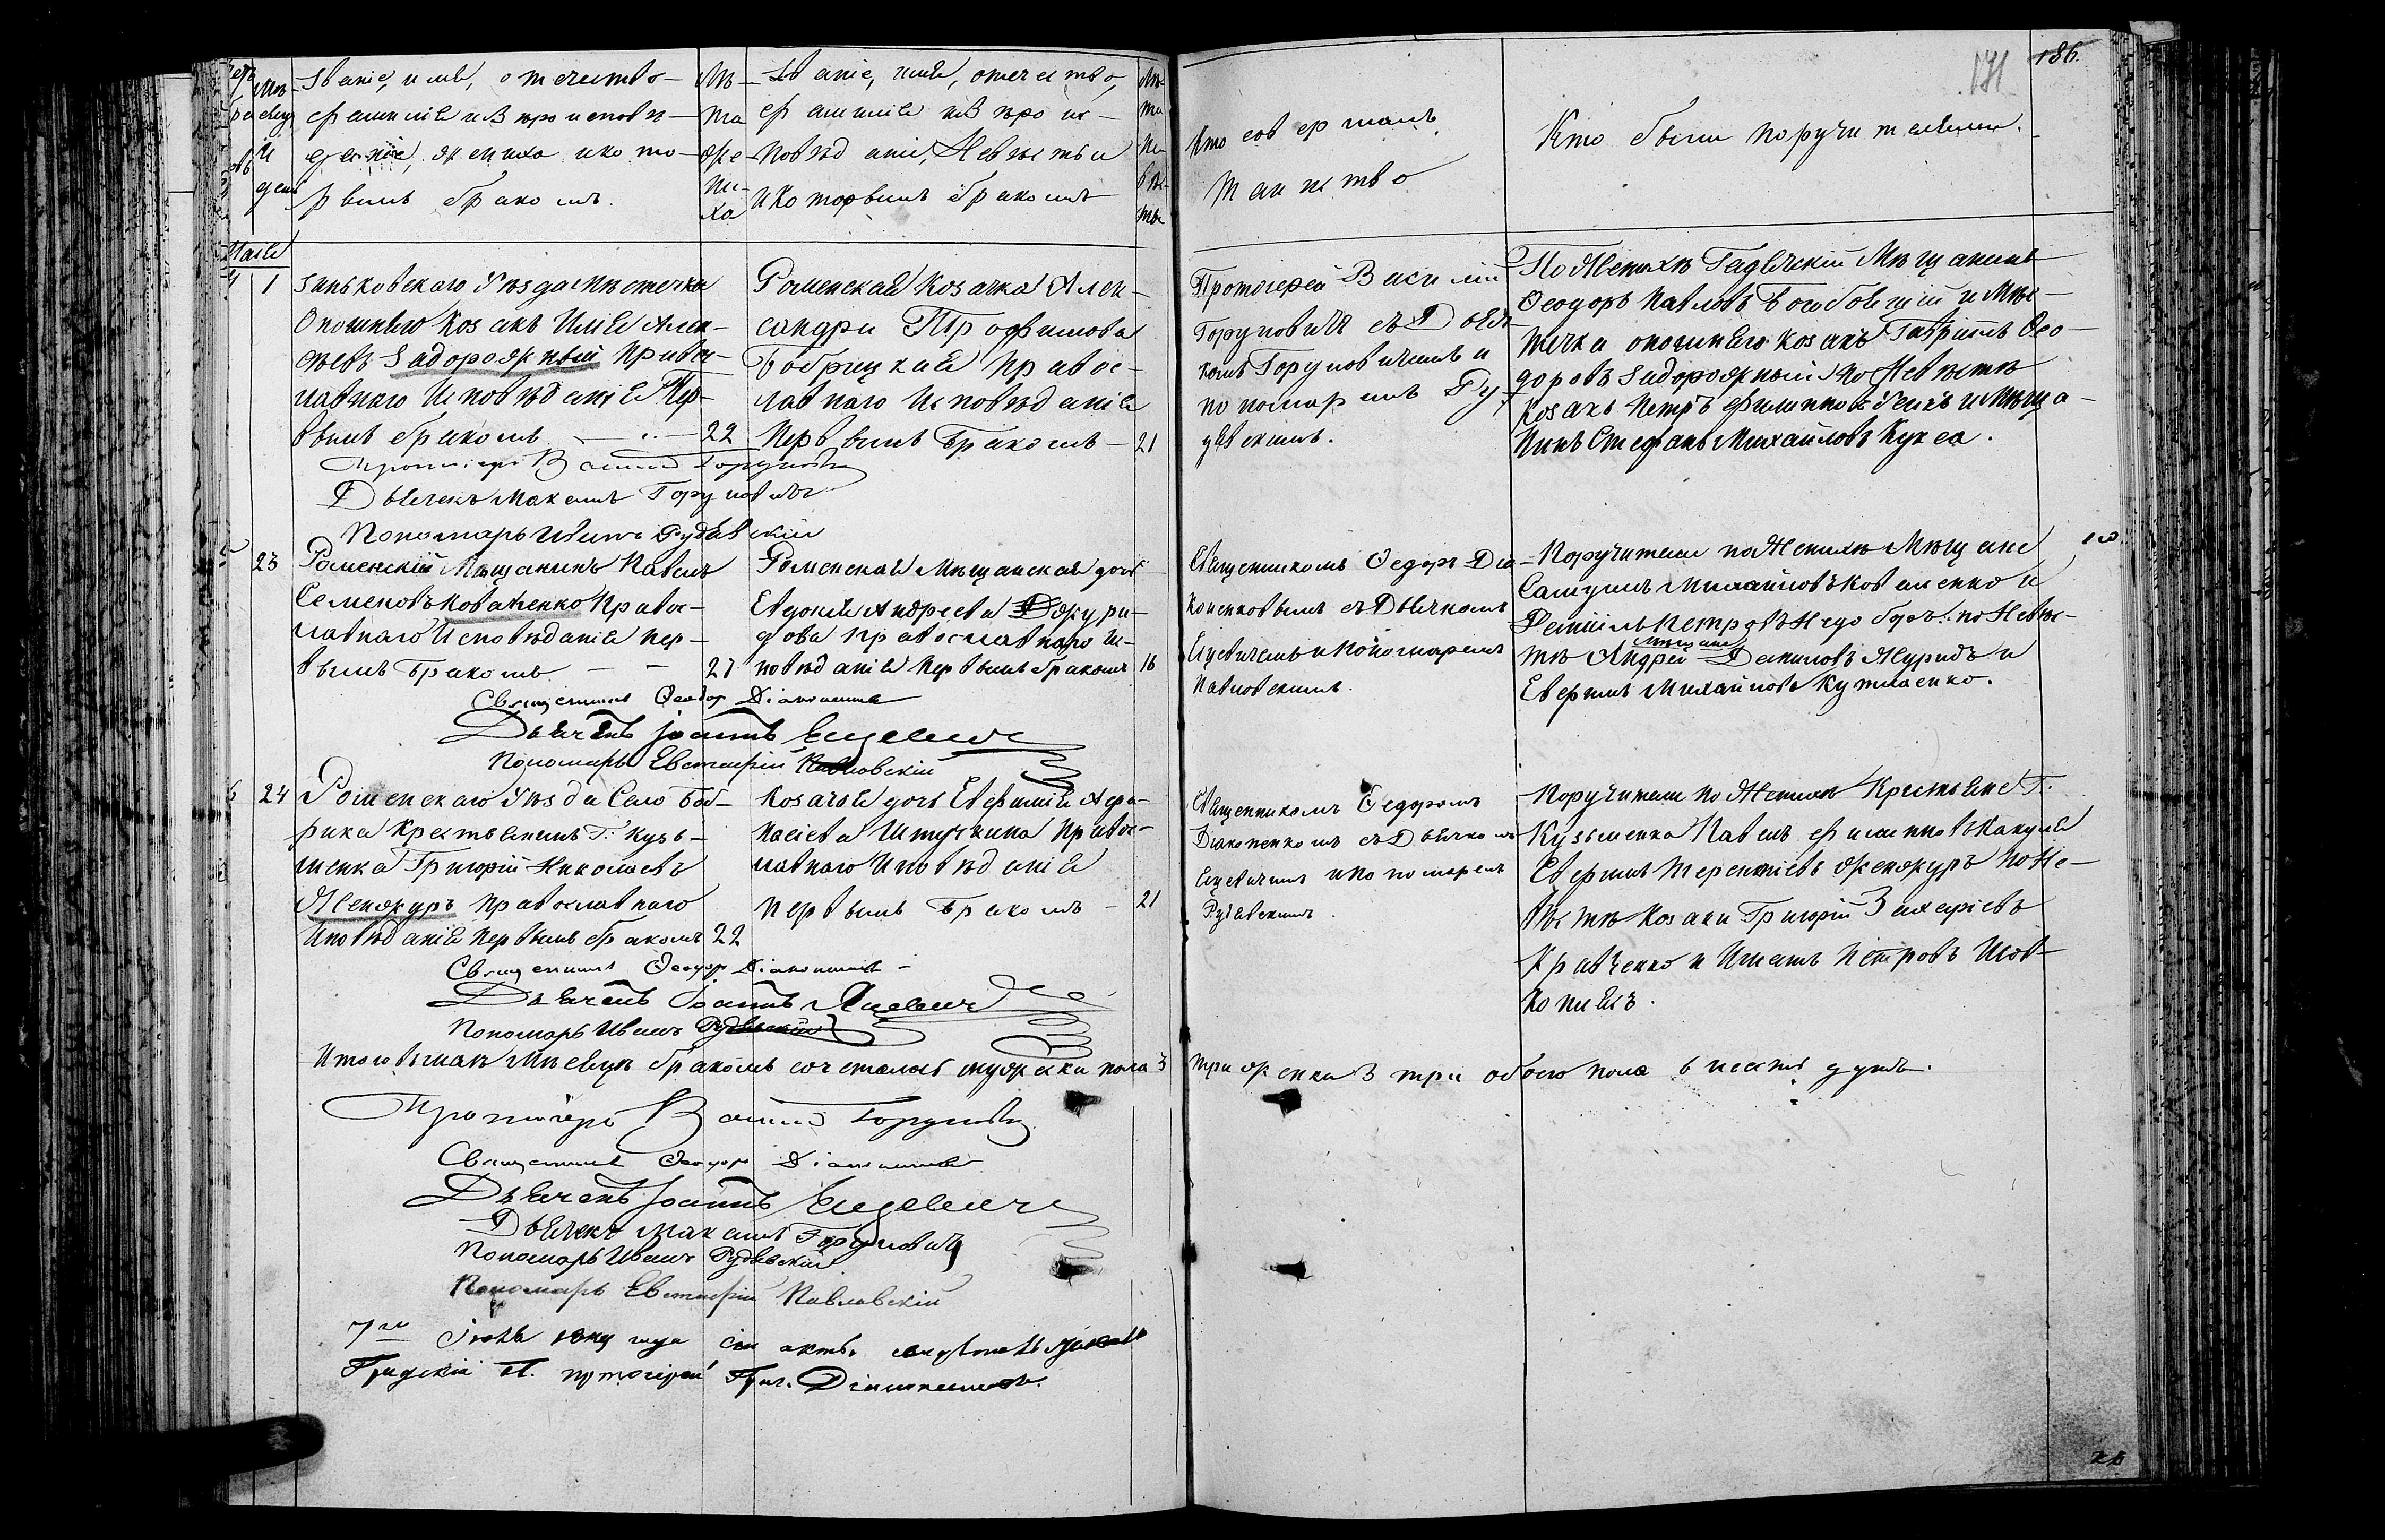 186.
171
Званіе, имя, отчество
фамилія и вѣроисповѣ-
даніе жениха и кото-
рымъ бракомъ.
Лѣ-
та
же-
ни-
ха
Званіе, имя, отечество,
фамилія и вѣроис-
повѣданіе, Невѣсты
и которымъ бракомъ
Лѣ-
та
не-
вѣс-
ты
Кто совершалъ
таинство
Кто были поручители.
Маія
4 1 Зиньковскаго Уѣзда Мѣстечка
Опошнѣго Козакъ Илія Алек-
сѣевъ Задорожный Правос-
лавнаго Исповѣданія Пер-
вымъ бракомъ 22
Роменская Козачка Алек-
сандра Трофимова
Бобрицкая Правос-
лавнаго Исповѣданія
Первымъ Бракомъ 21
Протоіерей Василій
Горуновичъ съ Дьяч-
комъ Горуновичемъ и
пономаремъ Ру-
дѣвскимъ.
По Женихѣ Гадячскій Мѣщанинъ
Феодоръ Павловъ и Мѣс-
течка опошнѣго козакъ Гавріилъ Фео-
доровъ Задорожный по Невѣстѣ
Козакъ Петръ Филипповъ и Мѣща-
нинъ Стефанъ Михайловъ Кукса.
Протоіерей Василій Горуновичъ
Дьячекъ Максимъ Горуновичъ
Пономарь Иванъ Рудѣвскій
5 23 Роменскій Мѣщанинъ Павелъ
Семеновъ Коваленко Правос-
лавнаго Исповѣданія пер-
вымъ Бракомъ 27
Роменская Мѣщанская дочь
Евдокія Андреева Джури-
дова православнаго Ис-
повѣданія Первымъ бракомъ 16
Священникомъ Федоръ Діа-
коненковымъ съ Дьячкомъ
Ецевичемъ и Пономаремъ
Павловскимъ.
Поручители по Женихѣ Мѣщане
Самуилъ Михайловъ Коваленко и
Даніилъ Петровъ по Невѣс-
мѣщане
тѣ Андрей Даниловъ Журидъ и
Евфимъ Михайловъ Кутлаенко.
Священникъ Феодор Діаконенко
Дьячекъ Іоаннъ Ецевичъ
Пономарь Евстафій Павловскій
6 24 Роменскаго Уѣзда Село Боб-
рика Крестьянинъ Г. Кузь-
менка Григорій Николаевъ
Женжуръ православнаго
Исповѣданія первымъ бракомъ 22
Козачья дочь Евфимія Афа-
насіева Шпучкина Правос-
лавнаго Исповѣданія
первымъ Бракомъ 21
Священникомъ Федоромъ
Діаконенкомъ съ Дьячкомъ
Ецевичемъ и Пономаремъ
Рудѣвскимъ.
Поручители по Женихѣ Крестьяне Г.
Кузьменка Павелъ Филипповъ Макуха
Евфимъ Терентіевъ Женжуръ по Не-
вѣстѣ Козаки Григорій Захаріевъ
Кравченко и Игнатъ Петровъ Шов-
копиясъ.
Священникъ Феодор Діаконенко
Дьячекъ Іоаннъ Яцевичъ
Пономарь Иванъ Рудѣвскій
Итого въ маѣ Мѣсяцѣ бракомъ сочеталось мужеска пола 3 три женска 3 три обоего пола 6 шесть душъ.
Протоіерей Василій Горуновичъ
Священникъ Феодор Діаконенко
Дьячекъ Іоаннъ Ецевичъ
Дьячекъ Максимъ Горуновичъ
Пономарь Иванъ Рудѣвскій
Пономарь Евстафій Павловскій
7го Іюня года сіи акты
Градскій Протоіерей Григ. Діаконенковъ.